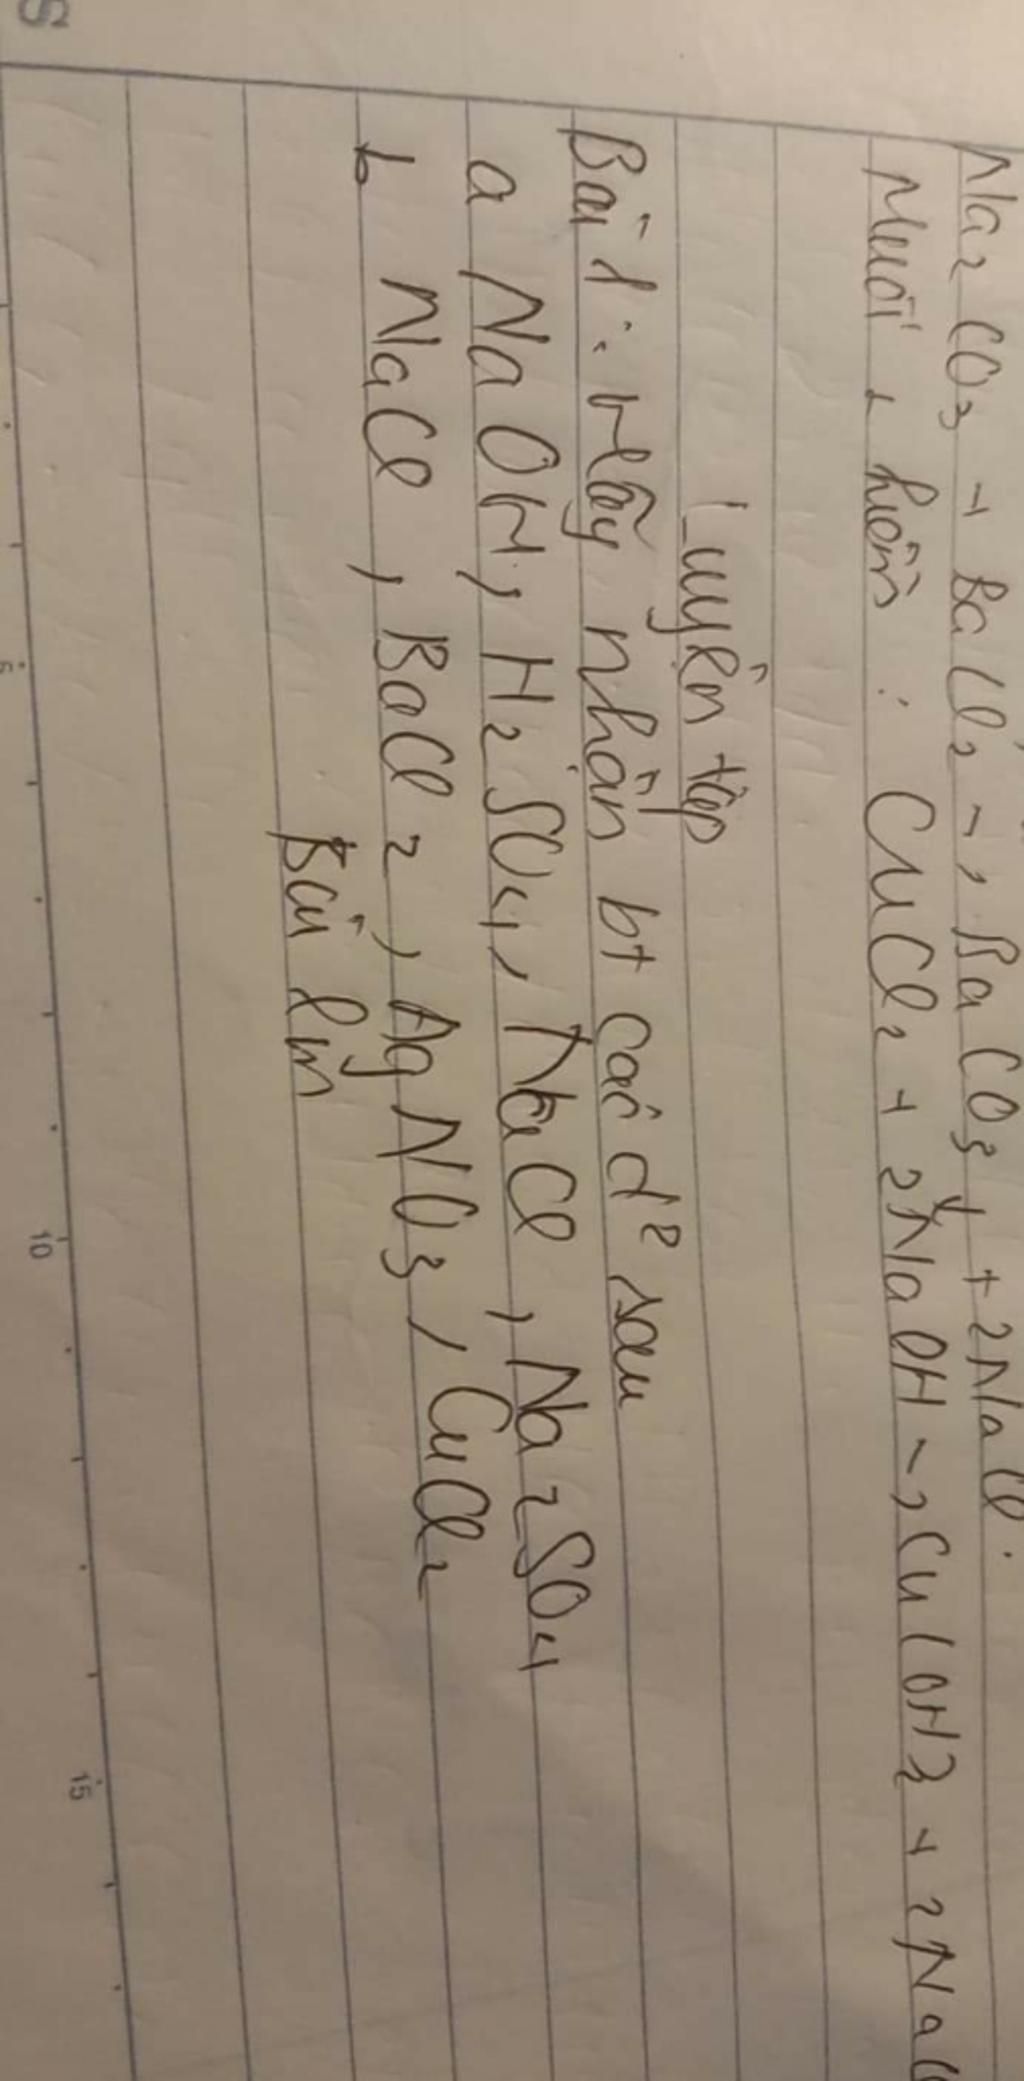 Na₂CO₃ + BaCl₂ → BaCO₃↓ + 2NaCl.
Muối + kiềm : CuCl₂ + 2NaOH → Cu(OH)₂ + 2NaCl
Luyện tập
Bài 1: Hãy nhận bt các d² sau
a NaOH, H₂SO₄, NaCl, Na₂SO₄
b NaCl, BaCl₂, AgNO₃, CuCl₂
Bài làm
5
10
15